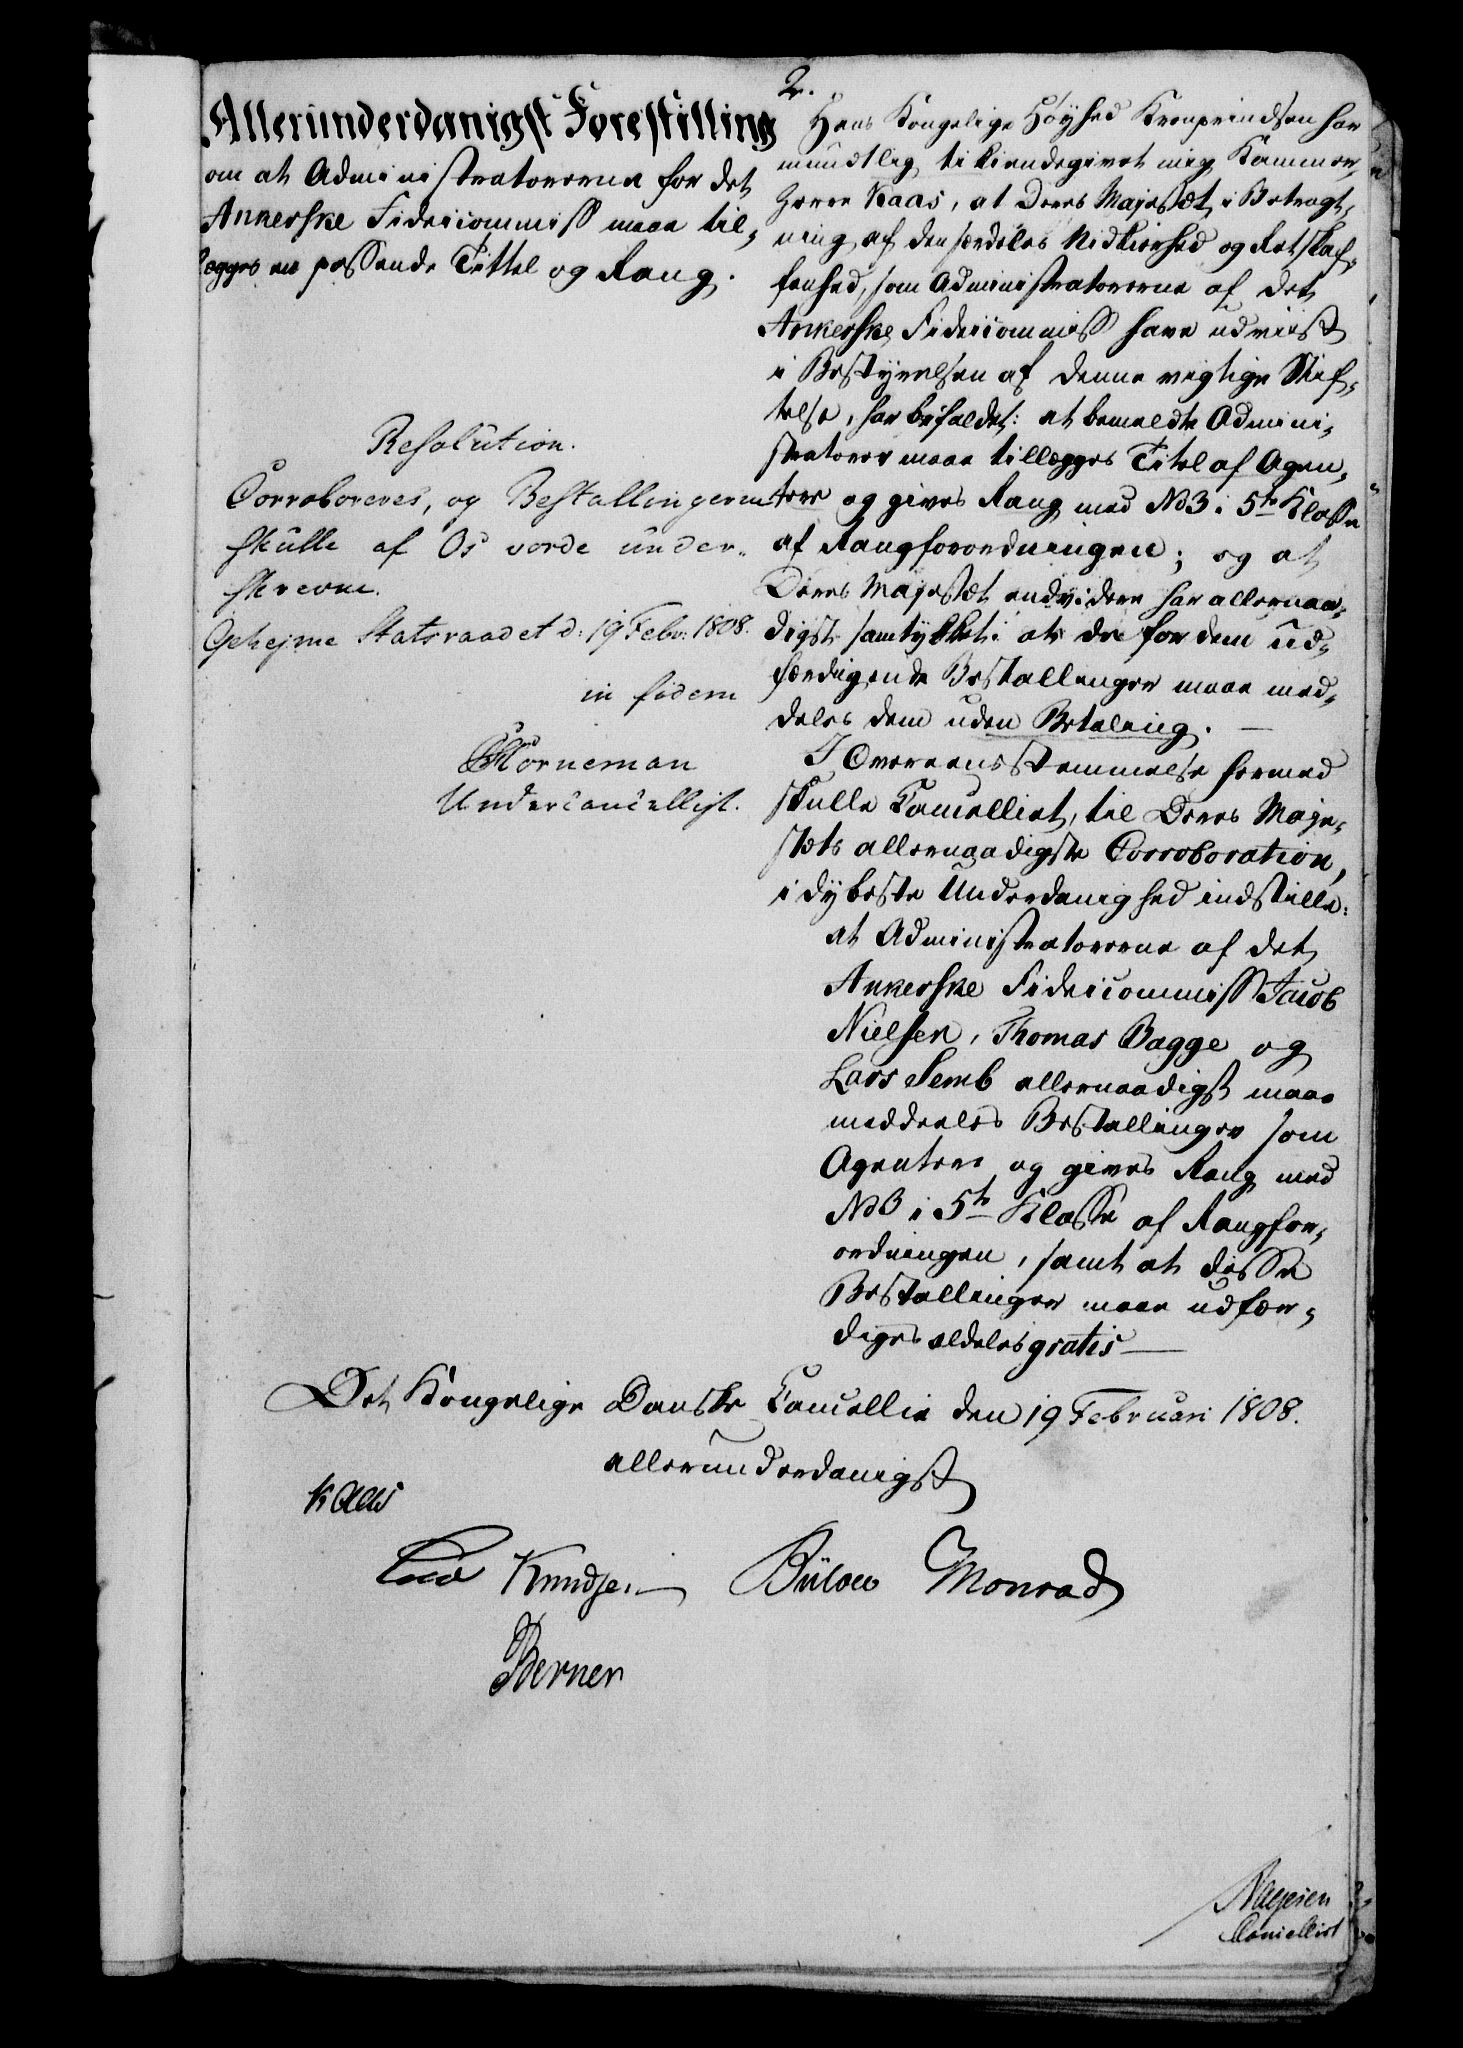 2.
Allerunderdanigst Forestilling
om at Administratorerne for det
Ankerske Fideicommiss maae til-
lægges en passende Tittel og Rang.
Resolution.
Corroboreres, og Bestallingerne
skulle af Os vorde under-
skrevne.
Geheime Statsraadet d: 19 Febr: 1808.
in fidem
Horneman
Undercancellist.
Hans Kongelige Høyhed Kronprindsen har
mundtlig tilkiendegivet mig Kammer-
Herre Kaas, at Deres Majestæt i Betragt-
ning af den særdeles Nidkierhed og Retskaf-
fenhed, som Administratorerne af det
Ankerske Fideicommiss have udviist
i Bestyrelsen af denne vigtige Stif-
telse, har befaldet: at bemeldte Admini-
stratorer maae tillægges Titel af Agen-
tere og gives Rang med No 3 i 5te Klasse
af Rangforordningen; og at
Deres Majestæt endvidere har allernaa-
digst samtykket i at de for dem ud-
færdigende Bestallinger maae med-
deles dem uden Betaling. —
I Overeensstemmelse hermed
skulle Cancelliet, til Deres Maje-
stæts allernaadigste Corroboration,
i dybeste Underdanighed indstille:
at Administratorerne af det
Ankerske Fideicommiss Jacob
Nielsen, Thomas Bagge og
Lars Semb allernaadigst maae
meddeeles Bestallinger som
Agentere og gives Rang med
No 3 i 5te Klasse af Rangfor-
ordningen, samt at disse
Bestallinger maae udfær-
diges aldeles gratis —
Det Kongelige Danske Cancellie den 19 Februari 1808.
allerunderdanigst
Kaas
Knudsen Bülow Monrad
Berner
Cancellist